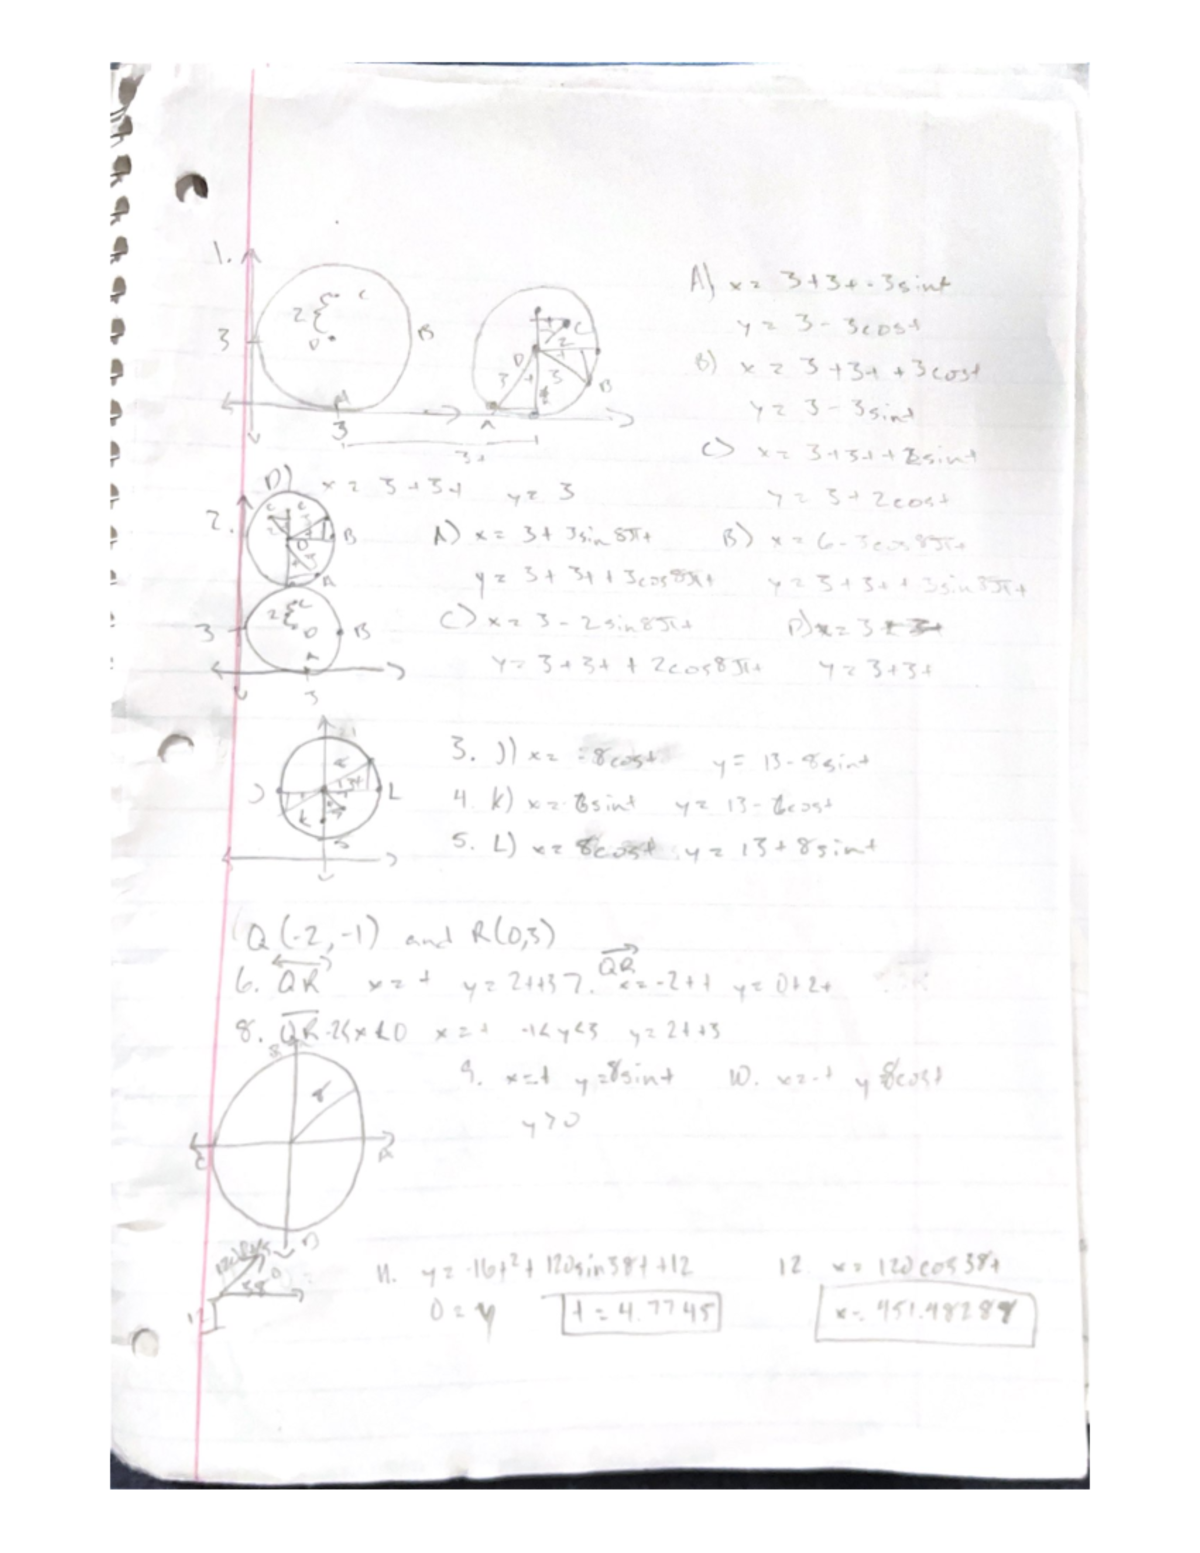 1.
A) x = 3+3t-3sint
y = 3-3cost
B) x = 3+3t+3cost
y = 3-3sint
C) x = 3+3t+2sint
y = 3+2cost
2 C
3 D B
A
3
3t
D C
3 2
3 B
A
D) x = 3+3t y = 3
2.
A) x = 3+3sin8πt B) x = 6-3cos8πt
y = 3+3t+3cos8πt y = 3+3t+3sin8πt
C) x = 3-2sin8πt D) x = 3
y = 3+3t+2cos8πt y = 3+3t
B
2 C
3 D B
A
3
3. J) x = -8cost y = 13-8sint
J L
K
4. K) x = sint y = 13- cost
5. L) x = 8cost y = 13+8sint
Q(-2,-1) and R(0,3)
6. QR x = t y = 2t+3 7. QR x = -2+t y = 0+2t
8. QR -2<x<0 x = t -1<y<3 y = 2t+3
9. x=t y=8sint 10. x=-t y 8cost
y>0
8
C A
D
120
38°
12
11. y = -16t²+120sin38t+12 12. x = 120cos38t
0 = y t = 4.7745 x = 451.48289